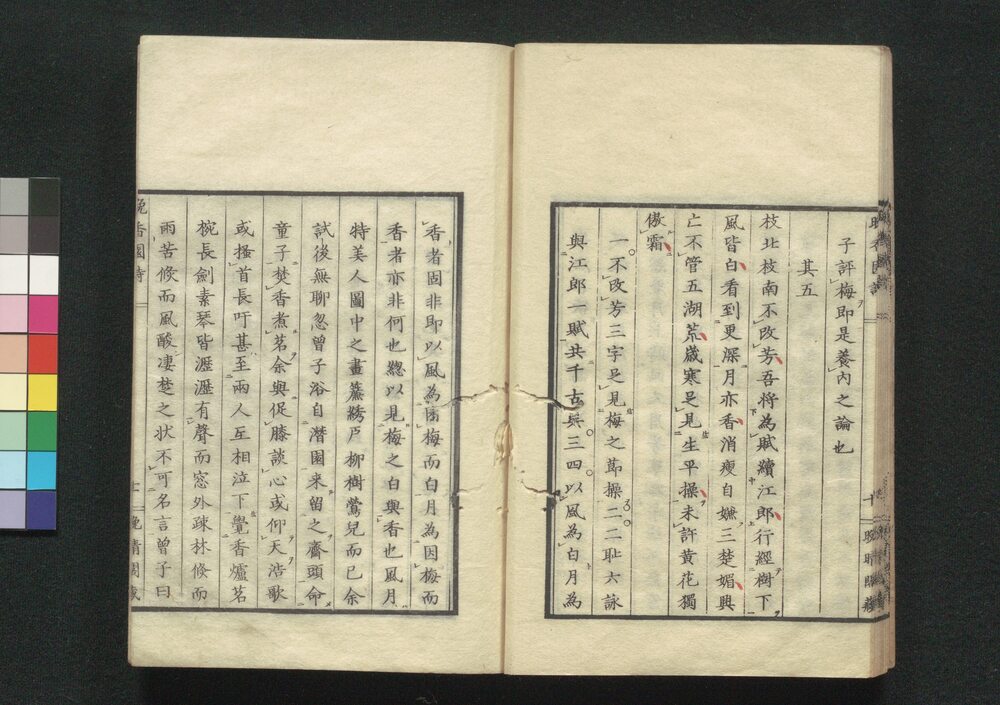 子評梅即是養內之論也
其五
枝北枝南不改芳吾将為賦續江郎行經樹下
風皆白看到更深月亦香消瘦自嫌三楚媚興
亡不管五湖荒歳寒足見生平操未許黄花獨
傲霜
一不改芳三字足見梅之節操二二耻六詠
與江郎一賦共千古無三四以風為白月為
香者固非即以風為因梅而白月為因梅而
香者亦非何也緫以見梅之白與香也風月
特美人圖中之畫簾綉戸柳樹鶯兒而已余
試後無聊忽曾子浴自潜園来留之齋頭命
童子焚香煮茗余與促膝談心或仰天浩歌
或搔首長吁甚至兩人互相泣下覺香爐茗
椀長劍素琴皆瀝瀝有聲而窓外疎林倏而
雨苦倏而風酸凄楚之状不可名言曾子曰
晩香園詩